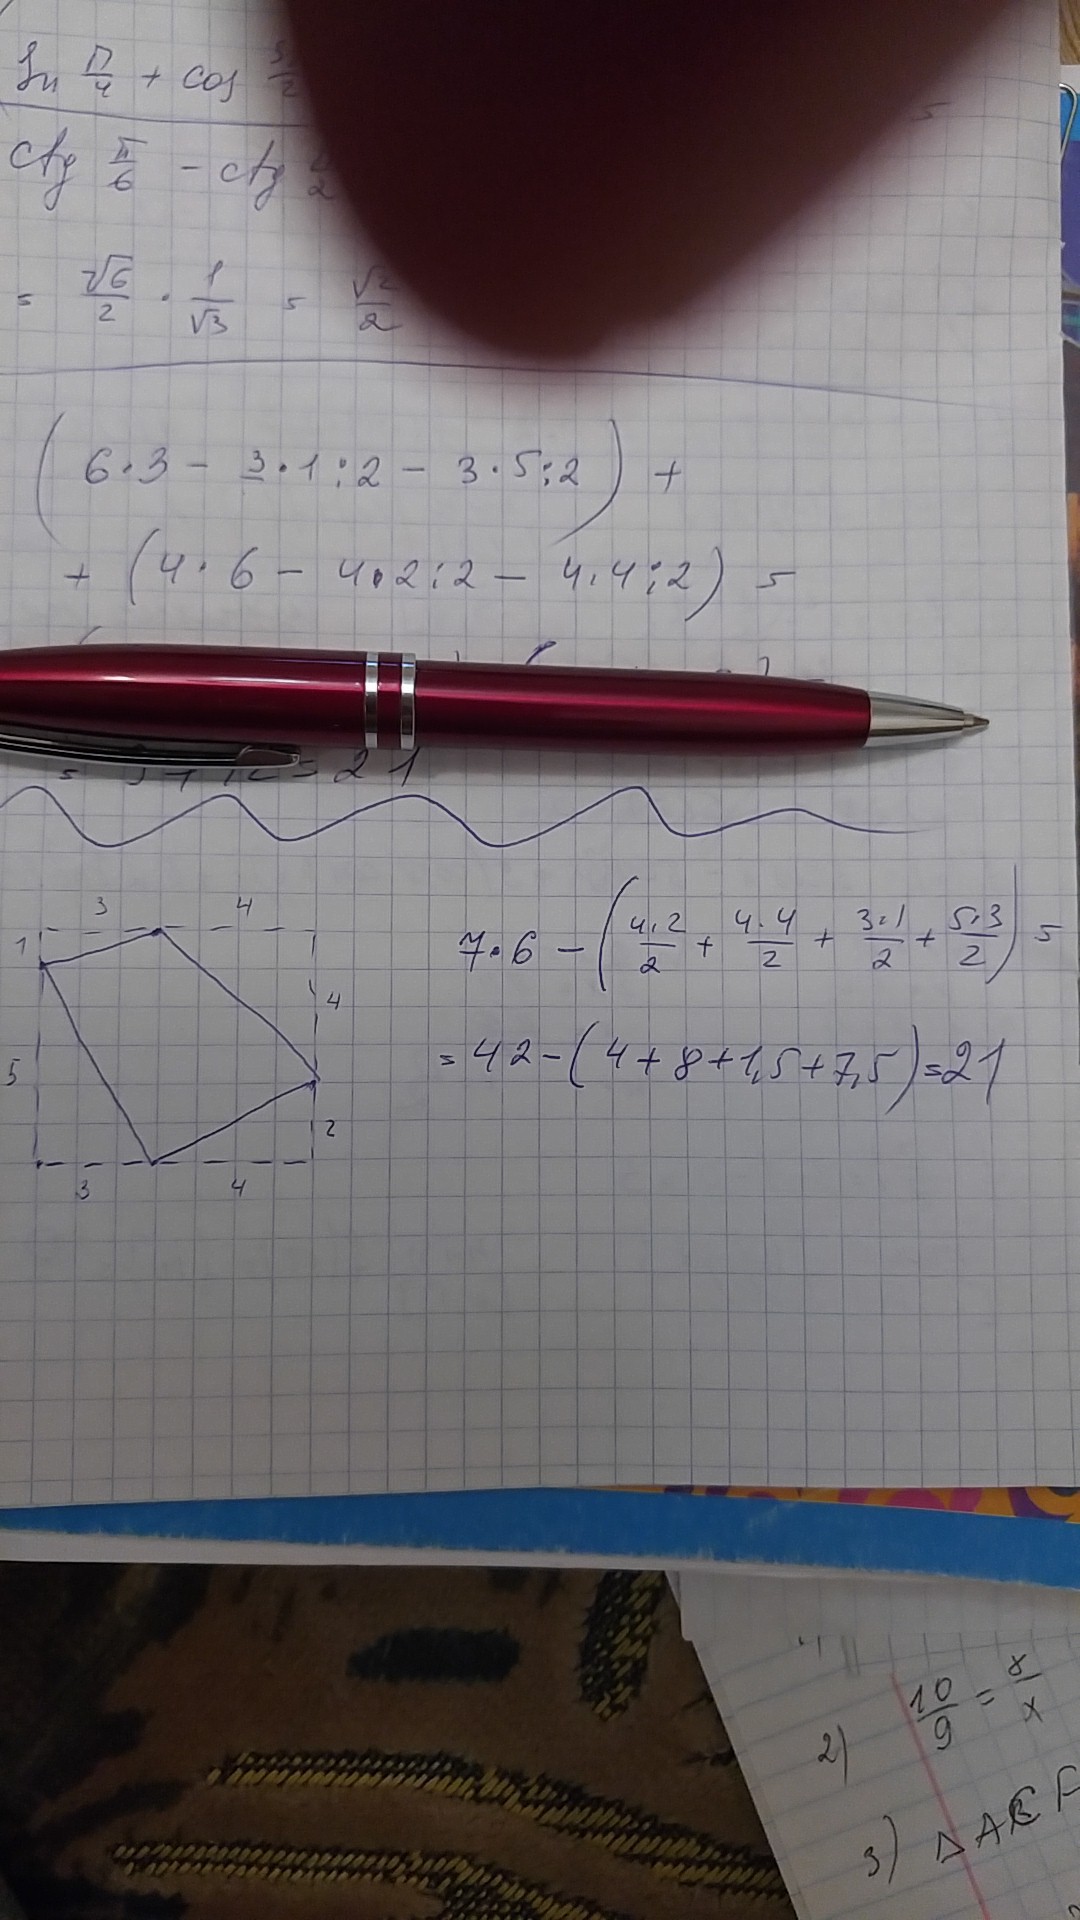 sin π/4 + cos
ctg π/6 - ctg
= √6/2 · 1/√3 = √2/2
(6·3 - 3·1:2 - 3·5:2) +
+ (4·6 - 4·2:2 - 4·4:2) =
= 21
3 4
1
4
5
2
3 4
7·6 - (4·2/2 + 4·4/2 + 3·1/2 + 5·3/2) =
= 42 - (4+8+1,5+7,5) = 21
2) 10/9 = 8/x
3) △